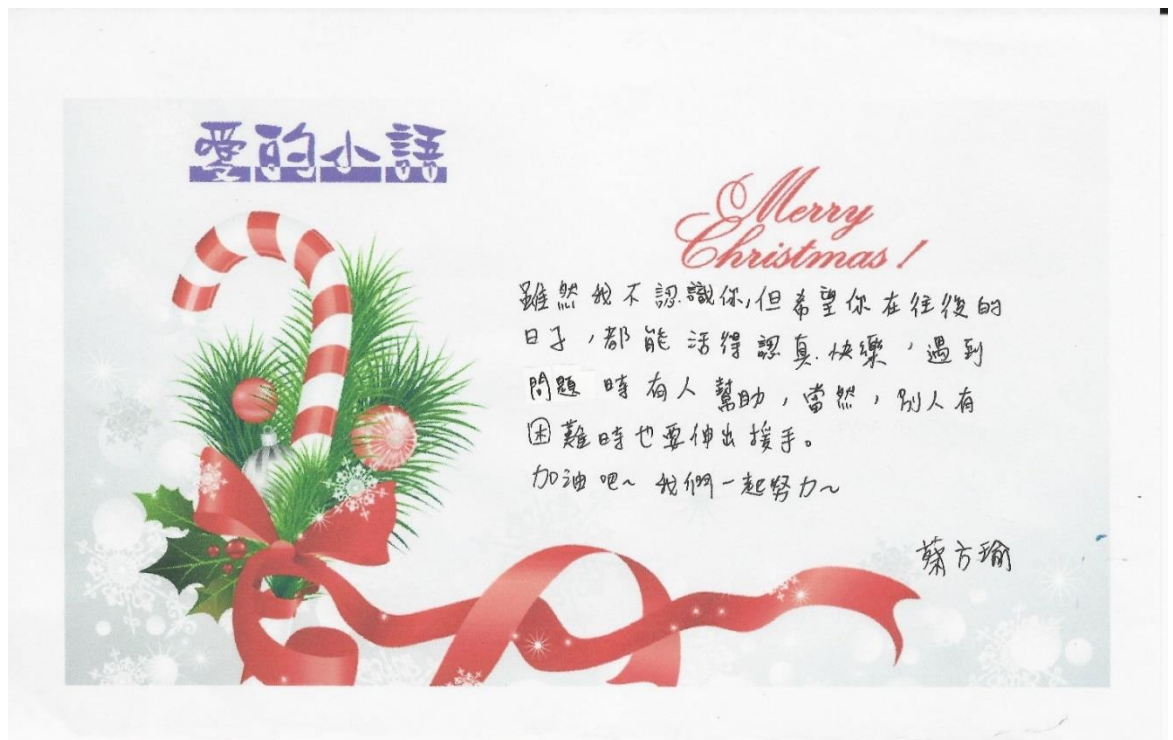 愛的小語
Merry
Christmas!
雖然我不認識你,但希望你在往後的
日子,都能活得認真.快樂,遇到
問題時有人幫助,當然,別人有
困難時也要伸出援手。
加油吧~我們一起努力~
蔡方瑜